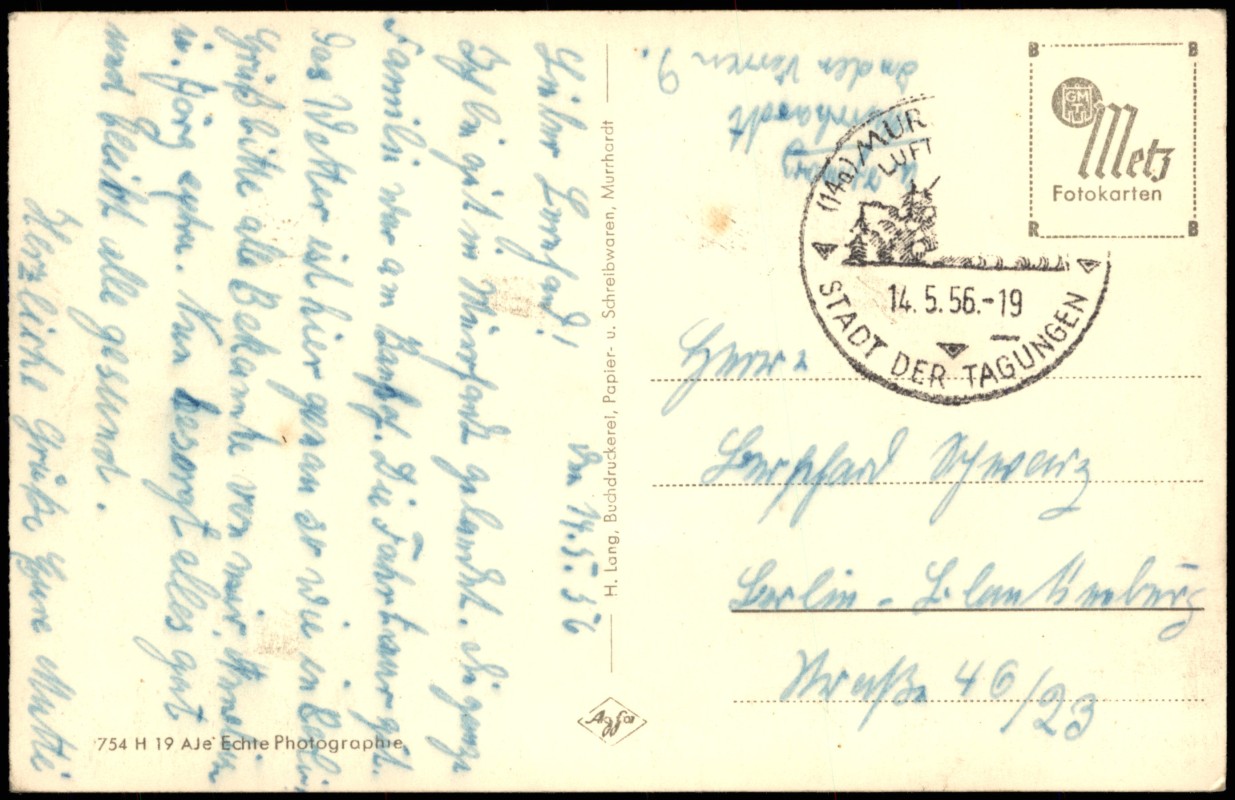 Den 14.5.56
Lieber Bernhard!
Ich bin gut in Murrhardt gelandet. Die ganze
Familie war am Bahnhof. Die Fahrt war gut.
Das Wetter ist hier genau so wie in Berlin
Grüß bitte alle Bekannte von mir,
u. Jörg extra. Nun besorgt alles gut
und bleibt alle gesund.
Herzliche Grüße Eure Mutti
754 H 19 AJe Echte Photographie
H. Lang, Buchdruckerei, Papier- u. Schreibwaren, Murrhardt
Agfa
Murrhardt
In der 9.
(14a) MUR
LUFT
14.5.56.-19
STADT DER TAGUNGEN
B B
GMT
Metz
Fotokarten
R B
Herrn
Bernhard Schwarz
Berlin-Blankenburg
Straße 46/23